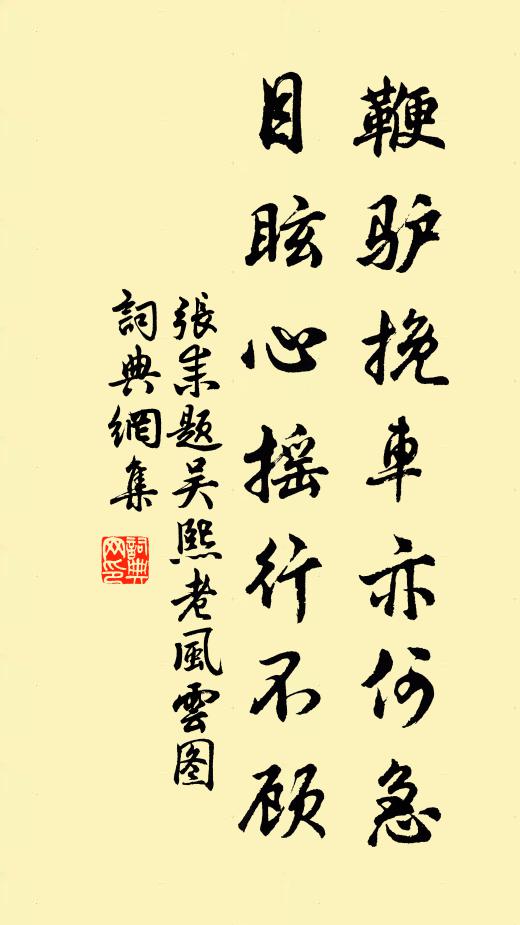 鞭驴挽車亦何急
目眩心摇行不顾
張耒题吴熙老風雲图
詞典網集
詞典
网印